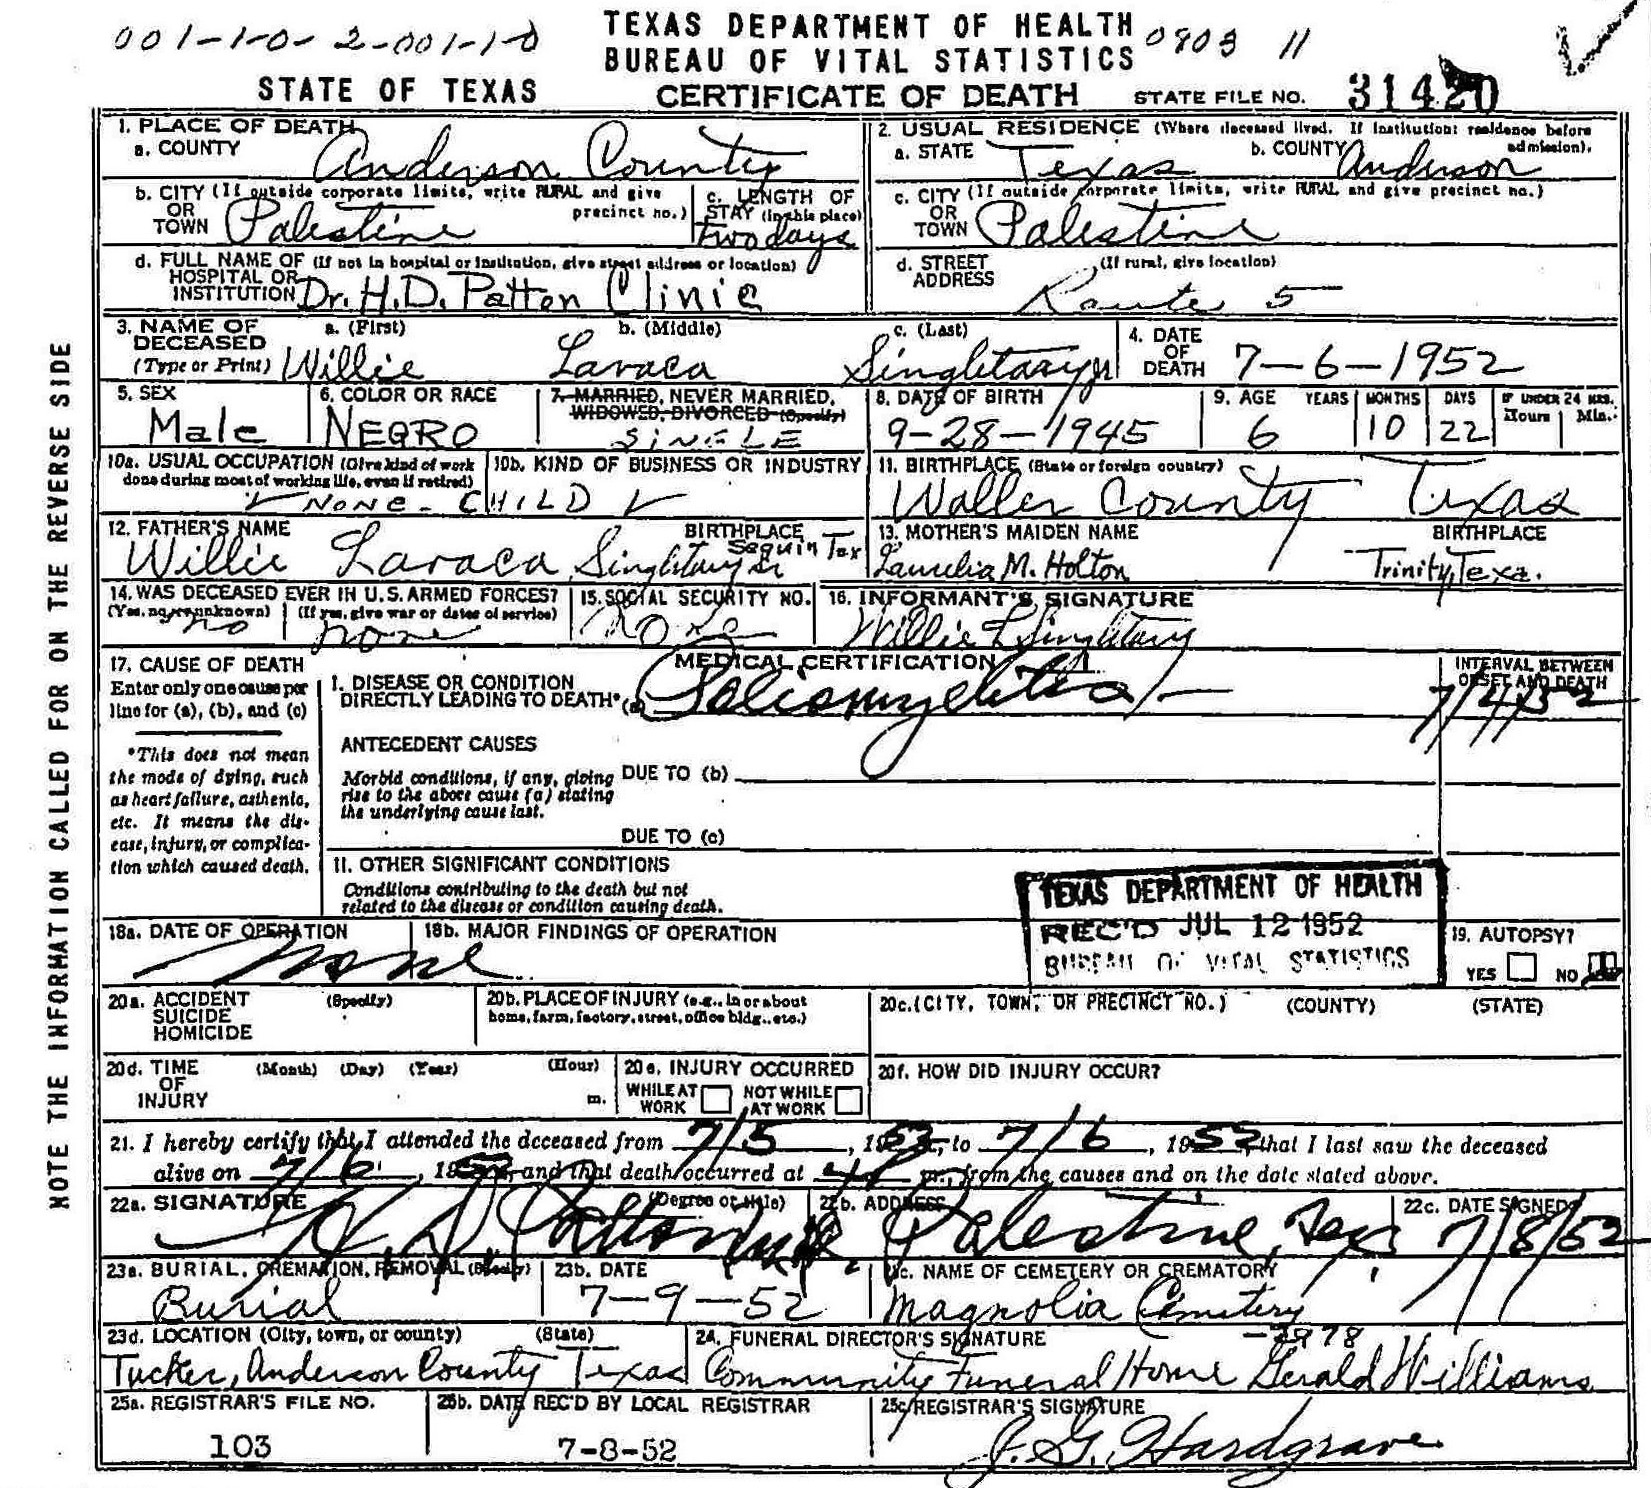 001-1-0-2-001-1-0
TEXAS DEPARTMENT OF HEALTH
BUREAU OF VITAL STATISTICS
0803 11
STATE OF TEXAS
CERTIFICATE OF DEATH
STATE FILE NO. 31420
NOTE THE INFORMATION CALLED FOR ON THE REVERSE SIDE
1. PLACE OF DEATH
a. COUNTY Anderson County
2. USUAL RESIDENCE (Where deceased lived. If institution: residence before admission).
a. STATE Texas b. COUNTY Anderson
b. CITY (If outside corporate limits, write RURAL and give precinct no.)
OR TOWN Palestine
c. LENGTH OF STAY (in this place) two days
c. CITY (If outside corporate limits, write RURAL and give precinct no.)
OR TOWN Palestine
d. FULL NAME OF (If not in hospital or institution, give street address or location)
HOSPITAL OR INSTITUTION Dr. H.D. Patton Clinic
d. STREET ADDRESS (If rural, give location)
Route 5
3. NAME OF DECEASED (Type or Print)
a. (First) b. (Middle) c. (Last)
Willie Lavaca Singletary Jr
4. DATE OF DEATH 7-6-1952
5. SEX
Male
6. COLOR OR RACE
NEGRO
7. MARRIED, NEVER MARRIED, WIDOWED, DIVORCED (Specify)
SINGLE
8. DATE OF BIRTH
9-28-1945
9. AGE YEARS MONTHS DAYS IF UNDER 24 HRS. Hours Min.
6 10 22
10a. USUAL OCCUPATION (Give kind of work done during most of working life, even if retired)
NONE - CHILD
10b. KIND OF BUSINESS OR INDUSTRY
11. BIRTHPLACE (State or foreign country)
Waller County Texas
12. FATHER'S NAME BIRTHPLACE
Willie Lavaca Singletary Sr Seguin Tex
13. MOTHER'S MAIDEN NAME BIRTHPLACE
M. Holton Trinity, Texa.
14. WAS DECEASED EVER IN U.S. ARMED FORCES?
(Yes, no, or unknown) (If yes, give war or dates of service)
no none
15. SOCIAL SECURITY NO.
None
16. INFORMANT'S SIGNATURE
Willie L Singletary
17. CAUSE OF DEATH
Enter only one cause per line for (a), (b), and (c)
*This does not mean the mode of dying, such as heart failure, asthenia, etc. It means the disease, injury, or complication which caused death.
MEDICAL CERTIFICATION
INTERVAL BETWEEN ONSET AND DEATH
I. DISEASE OR CONDITION
DIRECTLY LEADING TO DEATH* (a) Poliomyelitis
7/4/52
ANTECEDENT CAUSES
Morbid conditions, if any, giving rise to the above cause (a) stating the underlying cause last.
DUE TO (b)
DUE TO (c)
II. OTHER SIGNIFICANT CONDITIONS
Conditions contributing to the death but not related to the disease or condition causing death.
TEXAS DEPARTMENT OF HEALTH
REC'D JUL 12 1952
BUREAU OF VITAL STATISTICS
18a. DATE OF OPERATION
None
18b. MAJOR FINDINGS OF OPERATION
19. AUTOPSY?
YES NO
20a. ACCIDENT SUICIDE HOMICIDE (Specify)
20b. PLACE OF INJURY (e.g., in or about home, farm, factory, street, office bldg., etc.)
20c. (CITY, TOWN, OR PRECINCT NO.) (COUNTY) (STATE)
20d. TIME OF INJURY (Month) (Day) (Year) (Hour) m.
20e. INJURY OCCURRED
WHILE AT WORK NOT WHILE AT WORK
20f. HOW DID INJURY OCCUR?
21. I hereby certify that I attended the deceased from 7/5, 1952, to 7/6, 1952, that I last saw the deceased
alive on 7/6, 1952, and that death occurred at 4 P m., from the causes and on the date stated above.
22a. SIGNATURE (Degree or title)
H. D. Patton M.D.
22b. ADDRESS
Palestine, Tex.
22c. DATE SIGNED
7/8/52
23a. BURIAL, CREMATION, REMOVAL (Specify)
Burial
23b. DATE
7-9-52
23c. NAME OF CEMETERY OR CREMATORY
Magnolia Cemetery
23d. LOCATION (City, town, or county) (State)
Tucker, Anderson County Texas
24. FUNERAL DIRECTOR'S SIGNATURE
Community Funeral Home Gerald Williams
25a. REGISTRAR'S FILE NO.
103
25b. DATE REC'D BY LOCAL REGISTRAR
7-8-52
25c. REGISTRAR'S SIGNATURE
J. G. Hardgrave